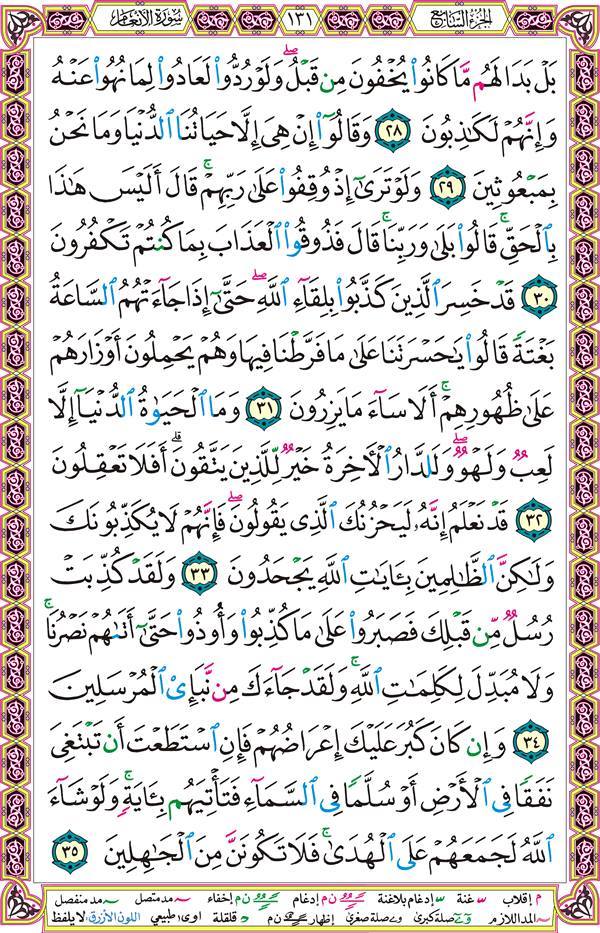 الجزء السابع
١٣١
سورة الأنعام
بَلْ بَدَا لَهُم مَّا كَانُوا۟ يُخْفُونَ مِن قَبْلُ ۖ وَلَوْ رُدُّوا۟ لَعَادُوا۟ لِمَا نُهُوا۟ عَنْهُ
وَإِنَّهُمْ لَكَـٰذِبُونَ ٢٨ وَقَالُوٓا۟ إِنْ هِىَ إِلَّا حَيَاتُنَا ٱلدُّنْيَا وَمَا نَحْنُ
بِمَبْعُوثِينَ ٢٩ وَلَوْ تَرَىٰٓ إِذْ وُقِفُوا۟ عَلَىٰ رَبِّهِمْ ۚ قَالَ أَلَيْسَ هَـٰذَا
بِٱلْحَقِّ ۚ قَالُوا۟ بَلَىٰ وَرَبِّنَا ۚ قَالَ فَذُوقُوا۟ ٱلْعَذَابَ بِمَا كُنتُمْ تَكْفُرُونَ
٣٠ قَدْ خَسِرَ ٱلَّذِينَ كَذَّبُوا۟ بِلِقَآءِ ٱللَّهِ ۖ حَتَّىٰٓ إِذَا جَآءَتْهُمُ ٱلسَّاعَةُ
بَغْتَةً قَالُوا۟ يَـٰحَسْرَتَنَا عَلَىٰ مَا فَرَّطْنَا فِيهَا وَهُمْ يَحْمِلُونَ أَوْزَارَهُمْ
عَلَىٰ ظُهُورِهِمْ ۚ أَلَا سَآءَ مَا يَزِرُونَ ٣١ وَمَا ٱلْحَيَوٰةُ ٱلدُّنْيَآ إِلَّا
لَعِبٌ وَلَهْوٌ ۖ وَلَلدَّارُ ٱلْـَٔاخِرَةُ خَيْرٌ لِّلَّذِينَ يَتَّقُونَ ۗ أَفَلَا تَعْقِلُونَ
٣٢ قَدْ نَعْلَمُ إِنَّهُۥ لَيَحْزُنُكَ ٱلَّذِى يَقُولُونَ ۖ فَإِنَّهُمْ لَا يُكَذِّبُونَكَ
وَلَـٰكِنَّ ٱلظَّـٰلِمِينَ بِـَٔايَـٰتِ ٱللَّهِ يَجْحَدُونَ ٣٣ وَلَقَدْ كُذِّبَتْ
رُسُلٌ مِّن قَبْلِكَ فَصَبَرُوا۟ عَلَىٰ مَا كُذِّبُوا۟ وَأُوذُوا۟ حَتَّىٰٓ أَتَىٰهُمْ نَصْرُنَا ۚ
وَلَا مُبَدِّلَ لِكَلِمَـٰتِ ٱللَّهِ ۚ وَلَقَدْ جَآءَكَ مِن نَّبَإِى۟ ٱلْمُرْسَلِينَ
٣٤ وَإِن كَانَ كَبُرَ عَلَيْكَ إِعْرَاضُهُمْ فَإِنِ ٱسْتَطَعْتَ أَن تَبْتَغِىَ
نَفَقًا فِى ٱلْأَرْضِ أَوْ سُلَّمًا فِى ٱلسَّمَآءِ فَتَأْتِيَهُم بِـَٔايَةٍ ۚ وَلَوْ شَآءَ
ٱللَّهُ لَجَمَعَهُمْ عَلَى ٱلْهُدَىٰ ۚ فَلَا تَكُونَنَّ مِنَ ٱلْجَـٰهِلِينَ ٣٥
م إقلاب غنة إدغام بلاغنة ن م إدغام ن م إخفاء مد متصل مد منفصل
المد اللازم صلة كبرى صلة صغرى إظهار ن م قلقلة اوى طبيعي اللون الأزرق: لا يلفظ